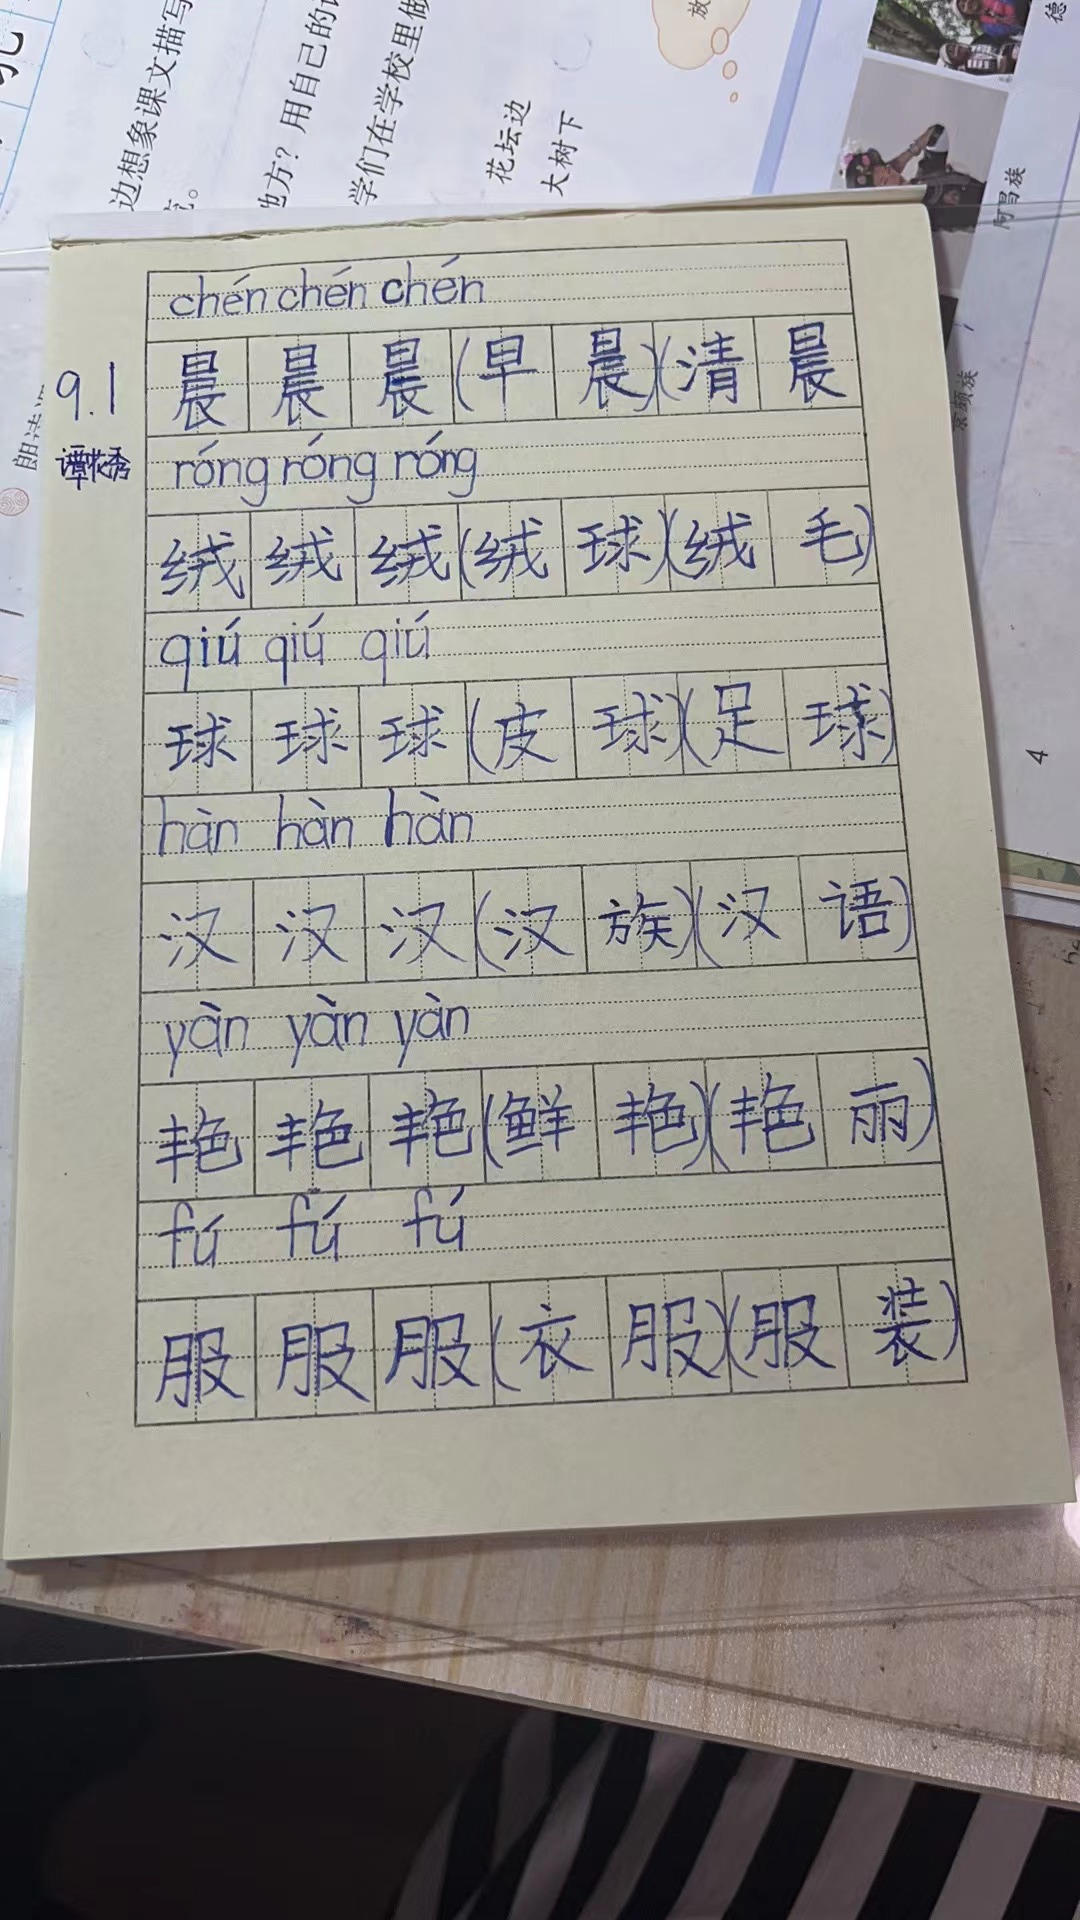 边想象课文描写
地方？用自己的
学们在学校里做
花坛边
大树下
放
德
阿昌族
4
朗读
9.1
谭花秀
chén chén chén
晨 晨 晨 (早 晨)(清 晨
róng róng róng
绒 绒 绒 (绒 球)(绒 毛)
qiú qiú qiú
球 球 球 (皮 球)(足 球)
hàn hàn hàn
汉 汉 汉 (汉 族)(汉 语)
yàn yàn yàn
艳 艳 艳 (鲜 艳)(艳 丽)
fú fú fú
服 服 服 (衣 服)(服 装)